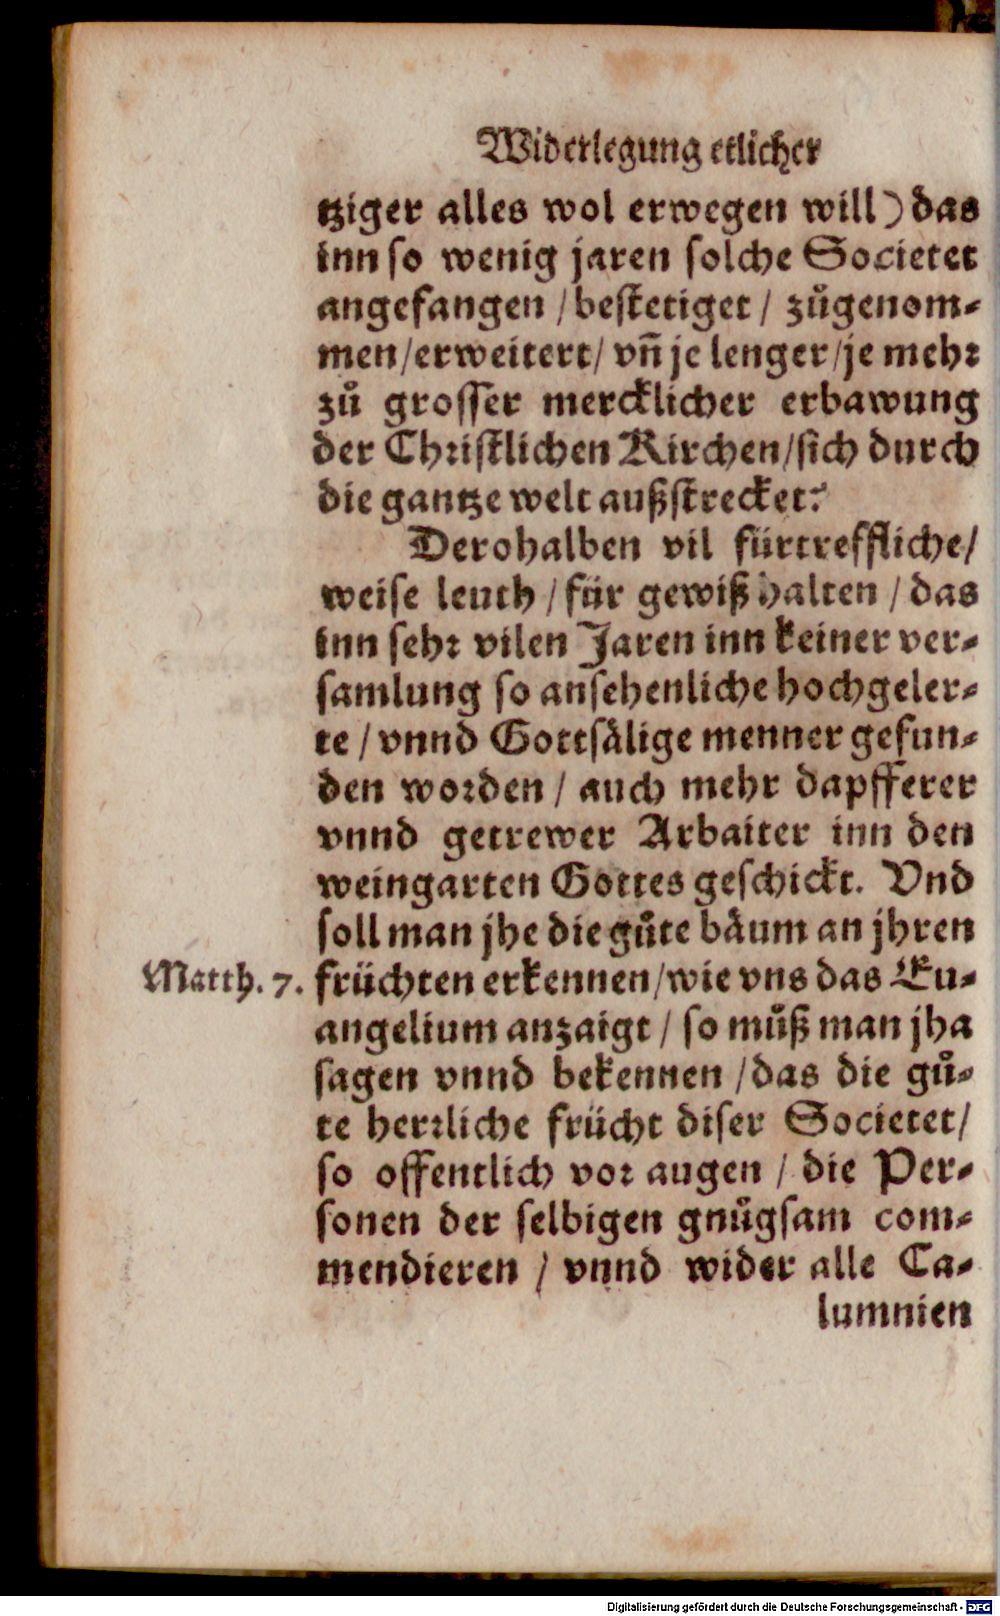 Widerlegung etlicher
tziger alles wol erwegen will) das
inn so wenig jaren solche Societet
angefangen / bestetiget / zůgenom⸗
men / erweitert / vñ je lenger / je mehr
zů grosser mercklicher erbawung
der Christlichen Kirchen / sich durch
die gantze welt außstrecket?
Derohalben vil fürtreffliche /
weise leuth / für gewiß halten / das
inn sehr vilen Jaren inn keiner ver⸗
samlung so ansehenliche hochgeler⸗
te / vnnd Gottsälige menner gefun⸗
den worden / auch mehr dapfferer
vnnd getrewer Arbaiter inn den
weingarten Gottes geschickt. Vnd
soll man jhe die gůte bäum an jhren
Matth. 7. früchten erkennen / wie vns das Eu⸗
angelium anzaigt / so můß man jha
sagen vnnd bekennen / das die gů⸗
te herrliche frücht diser Societet /
so offentlich vor augen / die Per⸗
sonen der selbigen gnůgsam com⸗
mendieren / vnnd wider alle Ca⸗
lumnien
Digitalisierung gefördert durch die Deutsche Forschungsgemeinschaft - DFG